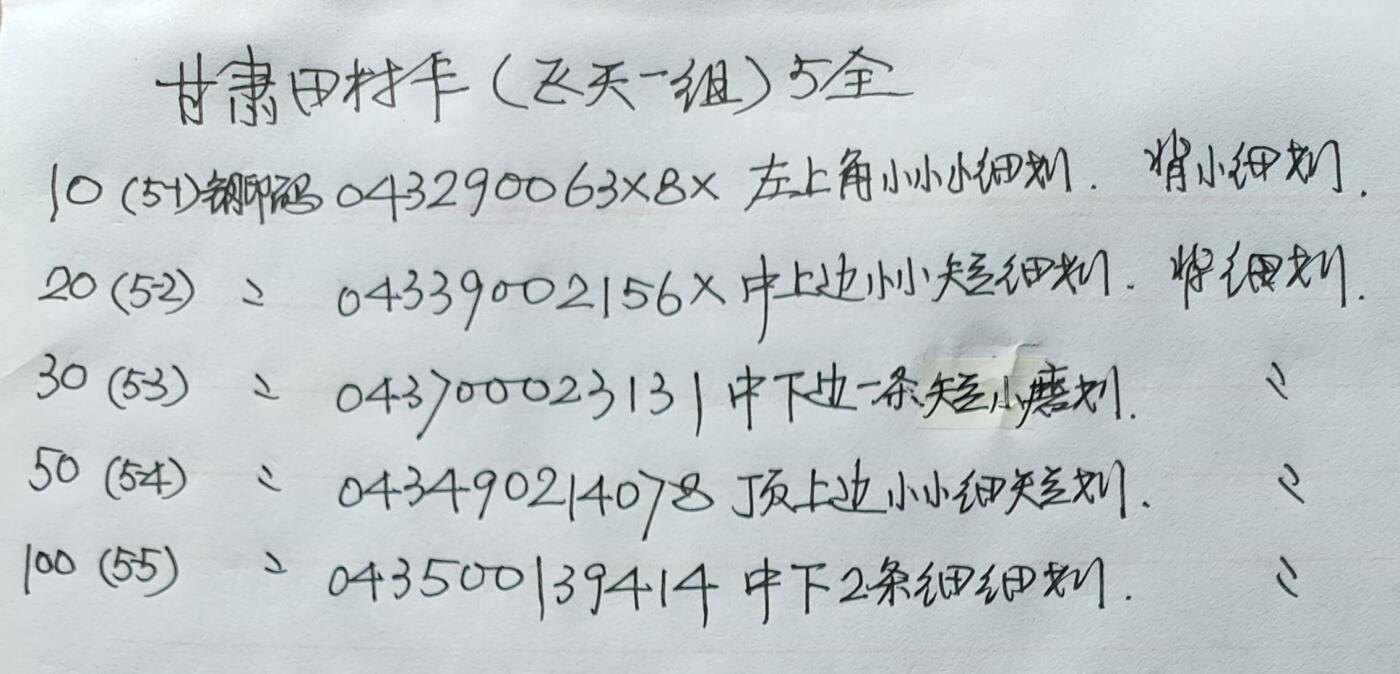 甘肃田村卡（飞天一组）5全
10（5-1）钢印码 043290063×8× 左上角小小小细划．背小细划．
20（5-2） 〃 04339002156× 中上边小小短细划．背细划．
30（5-3） 〃 043700023131 中下边一条短小磨划． 〃
50（5-4） 〃 043490214078 顶上边小小细短划． 〃
100（5-5） 〃 043500139414 中下2条细细划． 〃